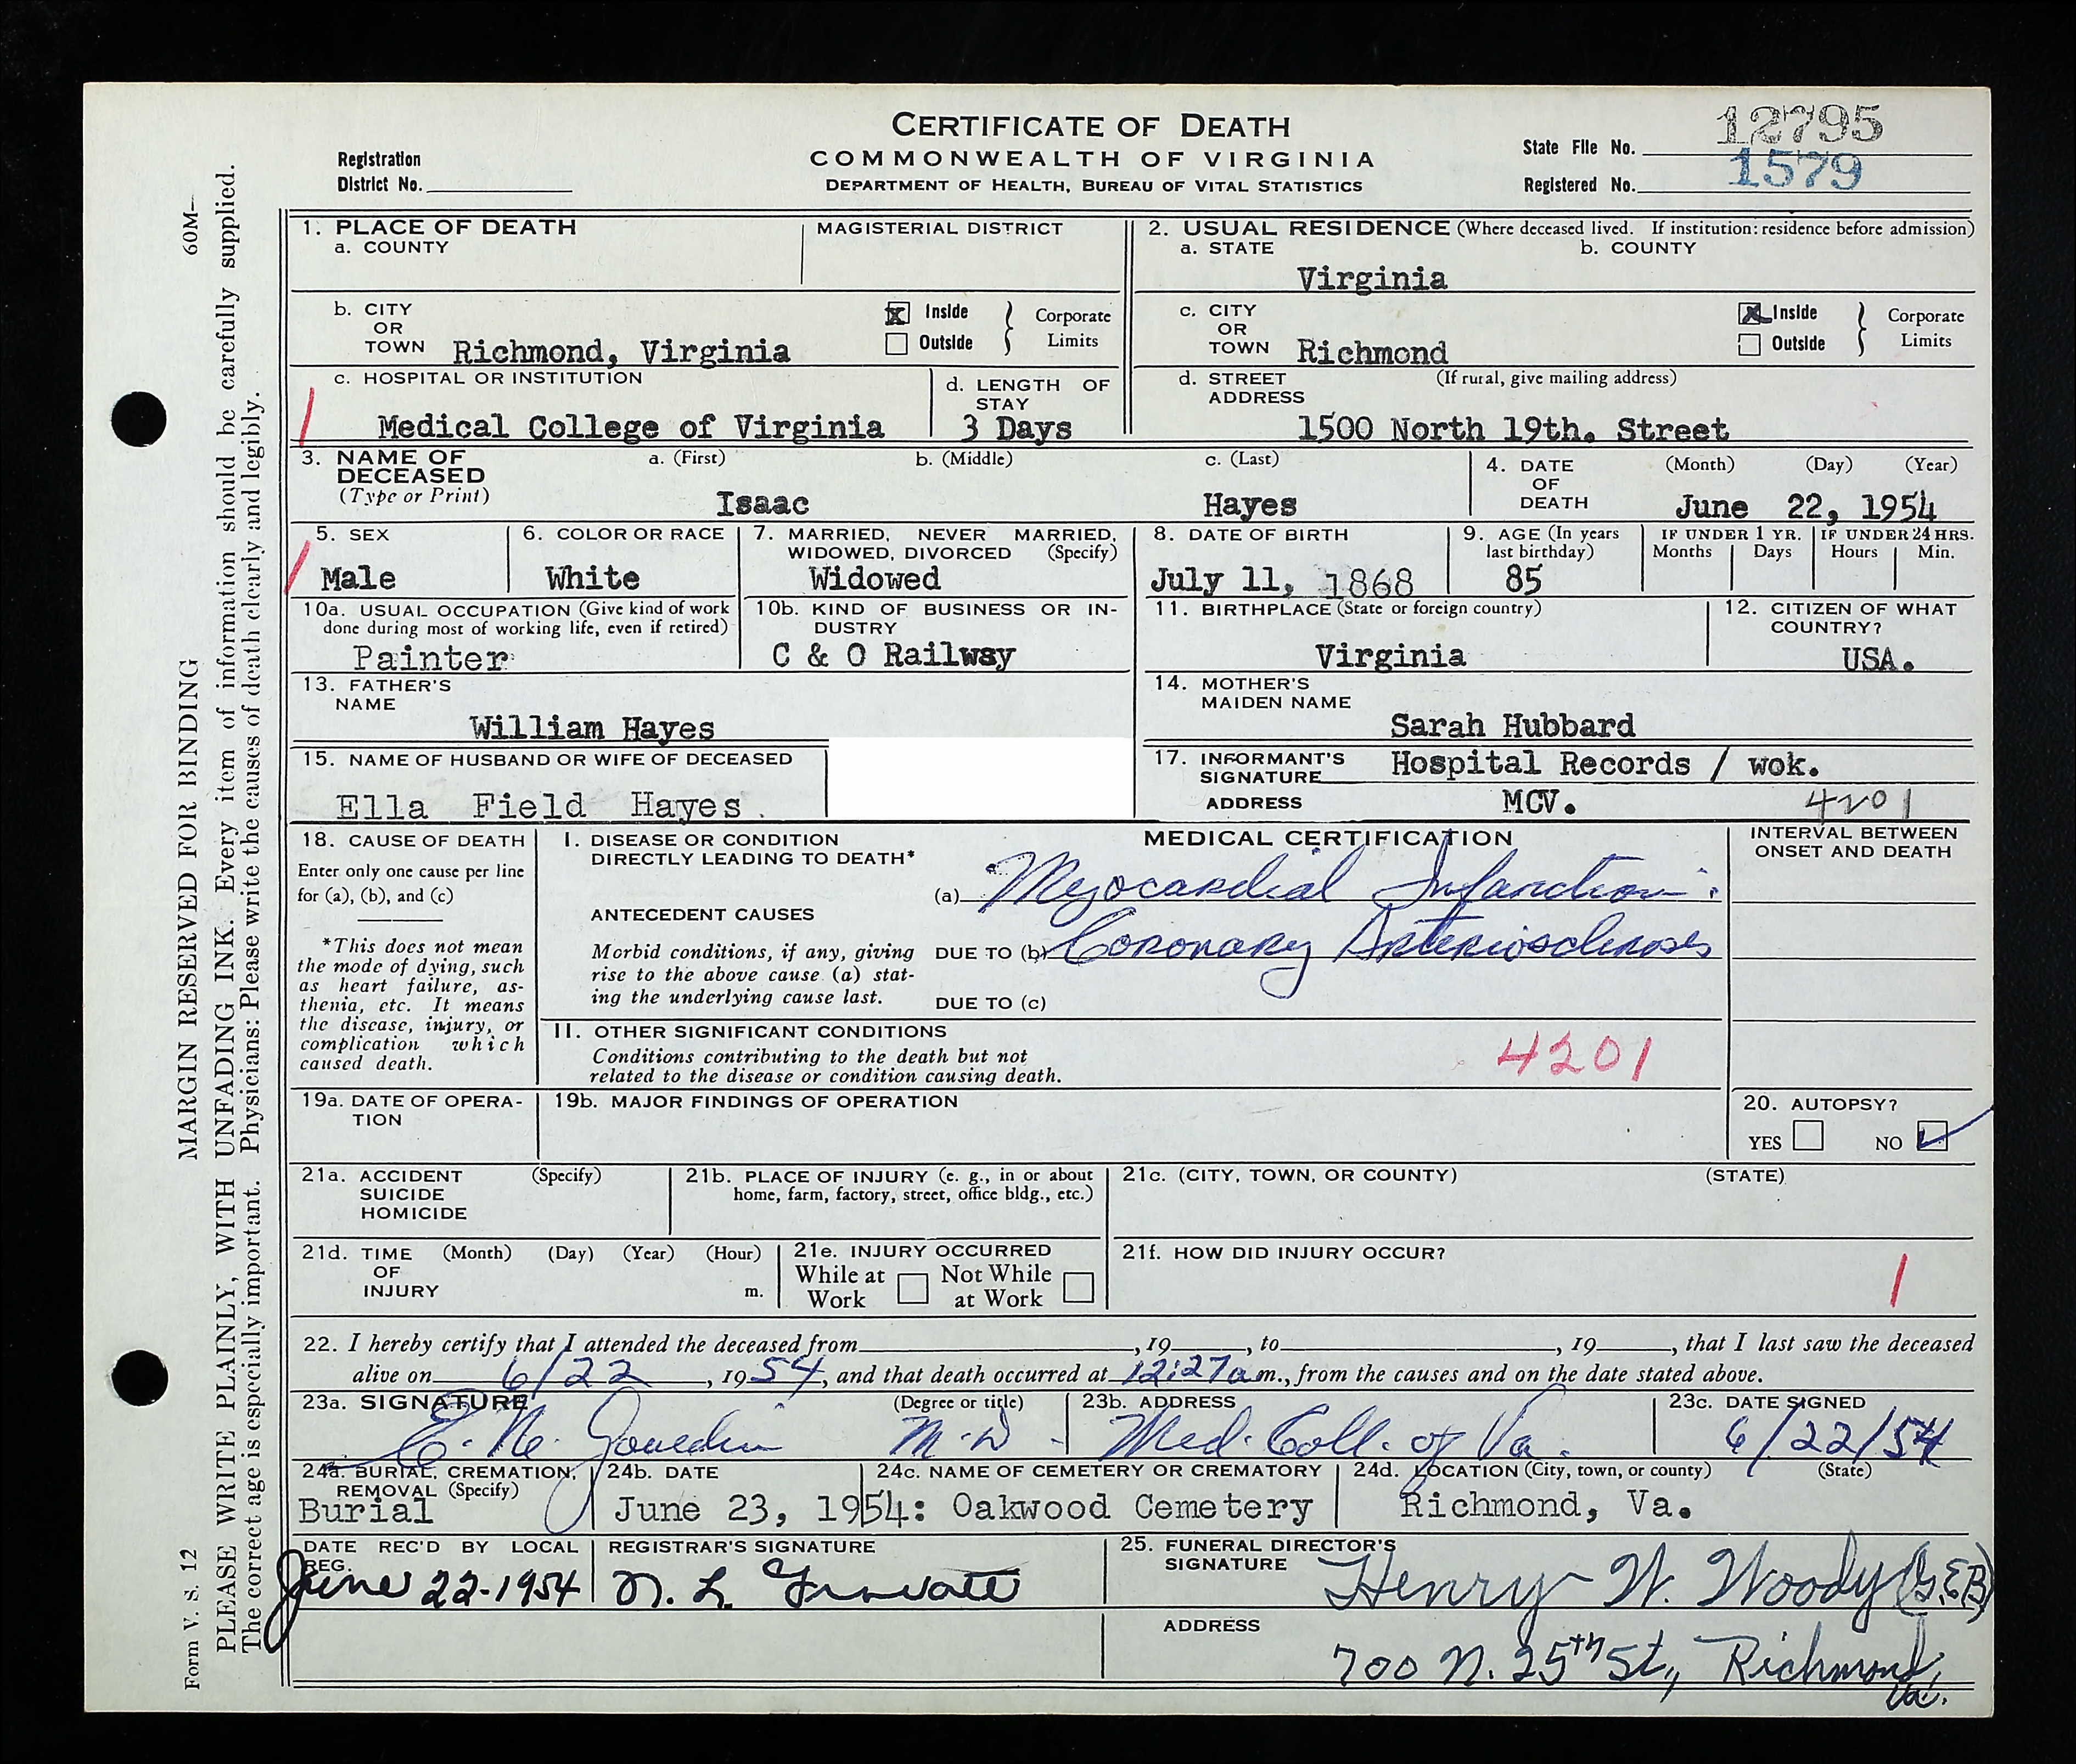 CERTIFICATE OF DEATH
COMMONWEALTH OF VIRGINIA
DEPARTMENT OF HEALTH, BUREAU OF VITAL STATISTICS
Registration District No.
State File No. 12795
Registered No. 1579
60M—
MARGIN RESERVED FOR BINDING
PLEASE WRITE PLAINLY, WITH UNFADING INK. Every item of information should be carefully supplied.
The correct age is especially important. Physicians: Please write the causes of death clearly and legibly.
Form V. S. 12
1. PLACE OF DEATH
a. COUNTY
MAGISTERIAL DISTRICT
2. USUAL RESIDENCE (Where deceased lived. If institution: residence before admission)
a. STATE
b. COUNTY
Virginia
b. CITY OR TOWN Richmond, Virginia
X Inside
Outside
Corporate Limits
c. CITY OR TOWN Richmond
X Inside
Outside
Corporate Limits
c. HOSPITAL OR INSTITUTION
Medical College of Virginia
d. LENGTH OF STAY
3 Days
d. STREET ADDRESS (If rural, give mailing address)
1500 North 19th. Street
3. NAME OF DECEASED (Type or Print)
a. (First) b. (Middle) c. (Last)
Isaac Hayes
4. DATE OF DEATH (Month) (Day) (Year)
June 22, 1954
5. SEX
Male
6. COLOR OR RACE
White
7. MARRIED, NEVER MARRIED, WIDOWED, DIVORCED (Specify)
Widowed
8. DATE OF BIRTH
July 11, 1868
9. AGE (In years last birthday)
85
IF UNDER 1 YR. Months Days
IF UNDER 24 HRS. Hours Min.
10a. USUAL OCCUPATION (Give kind of work done during most of working life, even if retired)
Painter
10b. KIND OF BUSINESS OR INDUSTRY
C & O Railway
11. BIRTHPLACE (State or foreign country)
Virginia
12. CITIZEN OF WHAT COUNTRY?
USA.
13. FATHER'S NAME
William Hayes
14. MOTHER'S MAIDEN NAME
Sarah Hubbard
15. NAME OF HUSBAND OR WIFE OF DECEASED
Ella Field Hayes.
17. INFORMANT'S SIGNATURE Hospital Records / wok.
ADDRESS MCV. 4201
18. CAUSE OF DEATH
Enter only one cause per line for (a), (b), and (c)
*This does not mean the mode of dying, such as heart failure, asthenia, etc. It means the disease, injury, or complication which caused death.
MEDICAL CERTIFICATION
INTERVAL BETWEEN ONSET AND DEATH
I. DISEASE OR CONDITION DIRECTLY LEADING TO DEATH*
(a) Myocardial Infarction
ANTECEDENT CAUSES
Morbid conditions, if any, giving rise to the above cause (a) stating the underlying cause last.
DUE TO (b) Coronary Arteriosclerosis
DUE TO (c)
II. OTHER SIGNIFICANT CONDITIONS
Conditions contributing to the death but not related to the disease or condition causing death.
4201
19a. DATE OF OPERATION
19b. MAJOR FINDINGS OF OPERATION
20. AUTOPSY?
YES NO
21a. ACCIDENT SUICIDE HOMICIDE (Specify)
21b. PLACE OF INJURY (e. g., in or about home, farm, factory, street, office bldg., etc.)
21c. (CITY, TOWN, OR COUNTY) (STATE)
21d. TIME OF INJURY (Month) (Day) (Year) (Hour) m.
21e. INJURY OCCURRED
While at Work
Not While at Work
21f. HOW DID INJURY OCCUR?
22. I hereby certify that I attended the deceased from , 19 , to , 19 , that I last saw the deceased
alive on 6/22, 1954, and that death occurred at 12:27 a m., from the causes and on the date stated above.
23a. SIGNATURE (Degree or title)
M.D.
23b. ADDRESS
Med. Coll. of Va.
23c. DATE SIGNED
6/22/54
24a. BURIAL, CREMATION, REMOVAL (Specify)
Burial
24b. DATE
June 23, 1954:
24c. NAME OF CEMETERY OR CREMATORY
Oakwood Cemetery
24d. LOCATION (City, town, or county) (State)
Richmond, Va.
DATE REC'D BY LOCAL REG.
June 22-1954
REGISTRAR'S SIGNATURE
25. FUNERAL DIRECTOR'S SIGNATURE
Henry W. Woody (G.E.B)
ADDRESS
700 N. 25th St., Richmond, Va.